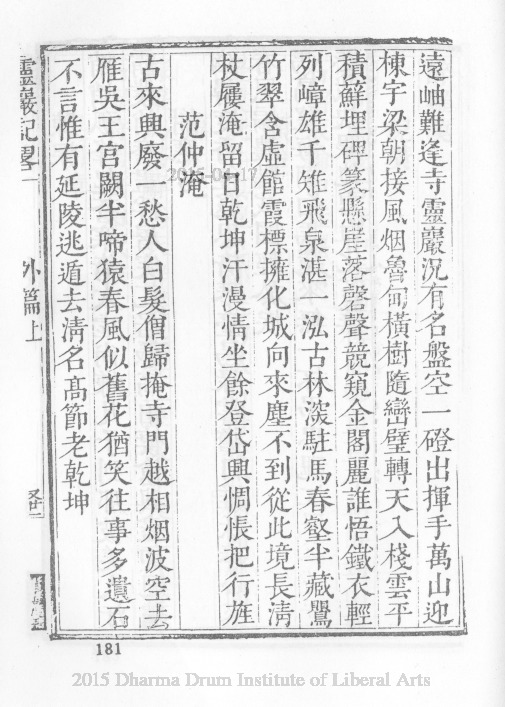 遠岫難逢寺靈巖況有名盤空一磴出揮手萬山迎
棟宇梁朝接風烟魯甸橫樹隨巒壁轉天入棧雲平
積蘚埋碑篆懸崖落磬聲競窺金閣麗誰悟鐵衣輕
列嶂雄千雉飛泉湛一泓古林深駐馬春壑半藏鶯
竹翠含虛館霞標擁化城向來塵不到從此境長清
杖屨淹留日乾坤汗漫情坐餘登岱興惆悵把行旌
范仲淹
古來興廢一愁人白髮僧歸掩寺門越相烟波空去
雁吳王宮闕半啼猿春風似舊花猶笑往事多遺石
不言惟有延陵逃遁去清名高節老乾坤
靈巖記畧
外篇上
181
2015 Dharma Drum Institute of Liberal Arts